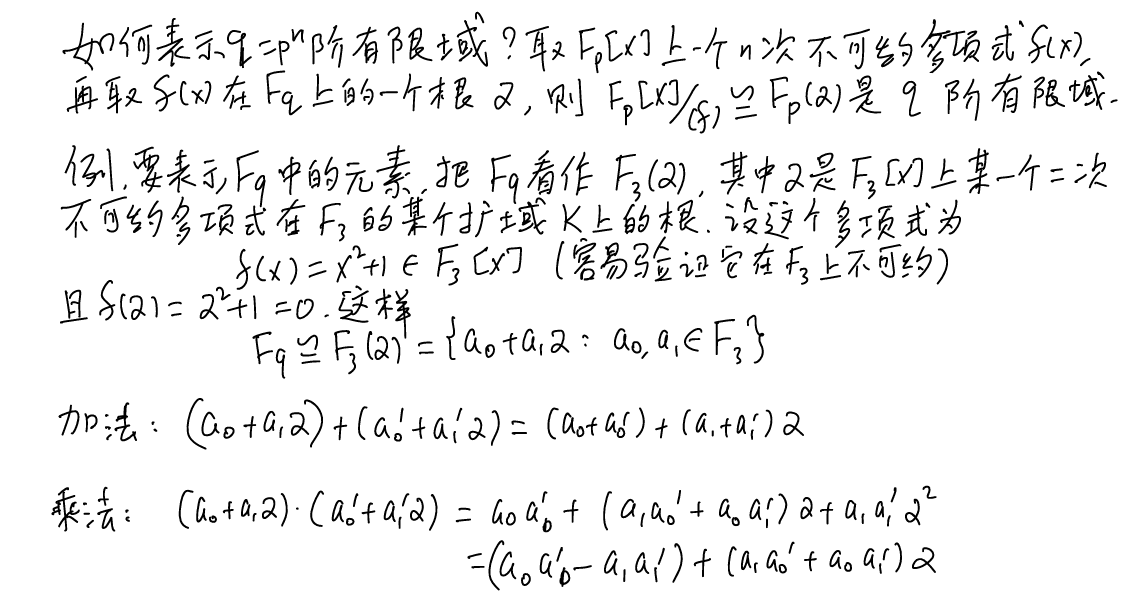 如何表示q=pⁿ阶有限域？取Fₚ[x]上一个n次不可约多项式f(x),
再取f(x)在F_q上的一个根α,则Fₚ[x]/(f)≌Fₚ(α)是q阶有限域.
例.要表示F₉中的元素.把F₉看作F₃(α),其中α是F₃[x]上某一个二次
不可约多项式在F₃的某个扩域K上的根.设这个多项式为
f(x)=x²+1∈F₃[x](容易验证它在F₃上不可约)
且f(α)=α²+1=0.这样
F₉≌F₃(α)={a₀+a₁α: a₀,a₁∈F₃}
加法: (a₀+a₁α)+(a₀'+a₁'α)=(a₀+a₀')+(a₁+a₁')α
乘法: (a₀+a₁α)·(a₀'+a₁'α)=a₀a₀'+(a₁a₀'+a₀a₁')α+a₁a₁'α²
=(a₀a₀'-a₁a₁')+(a₁a₀'+a₀a₁')α